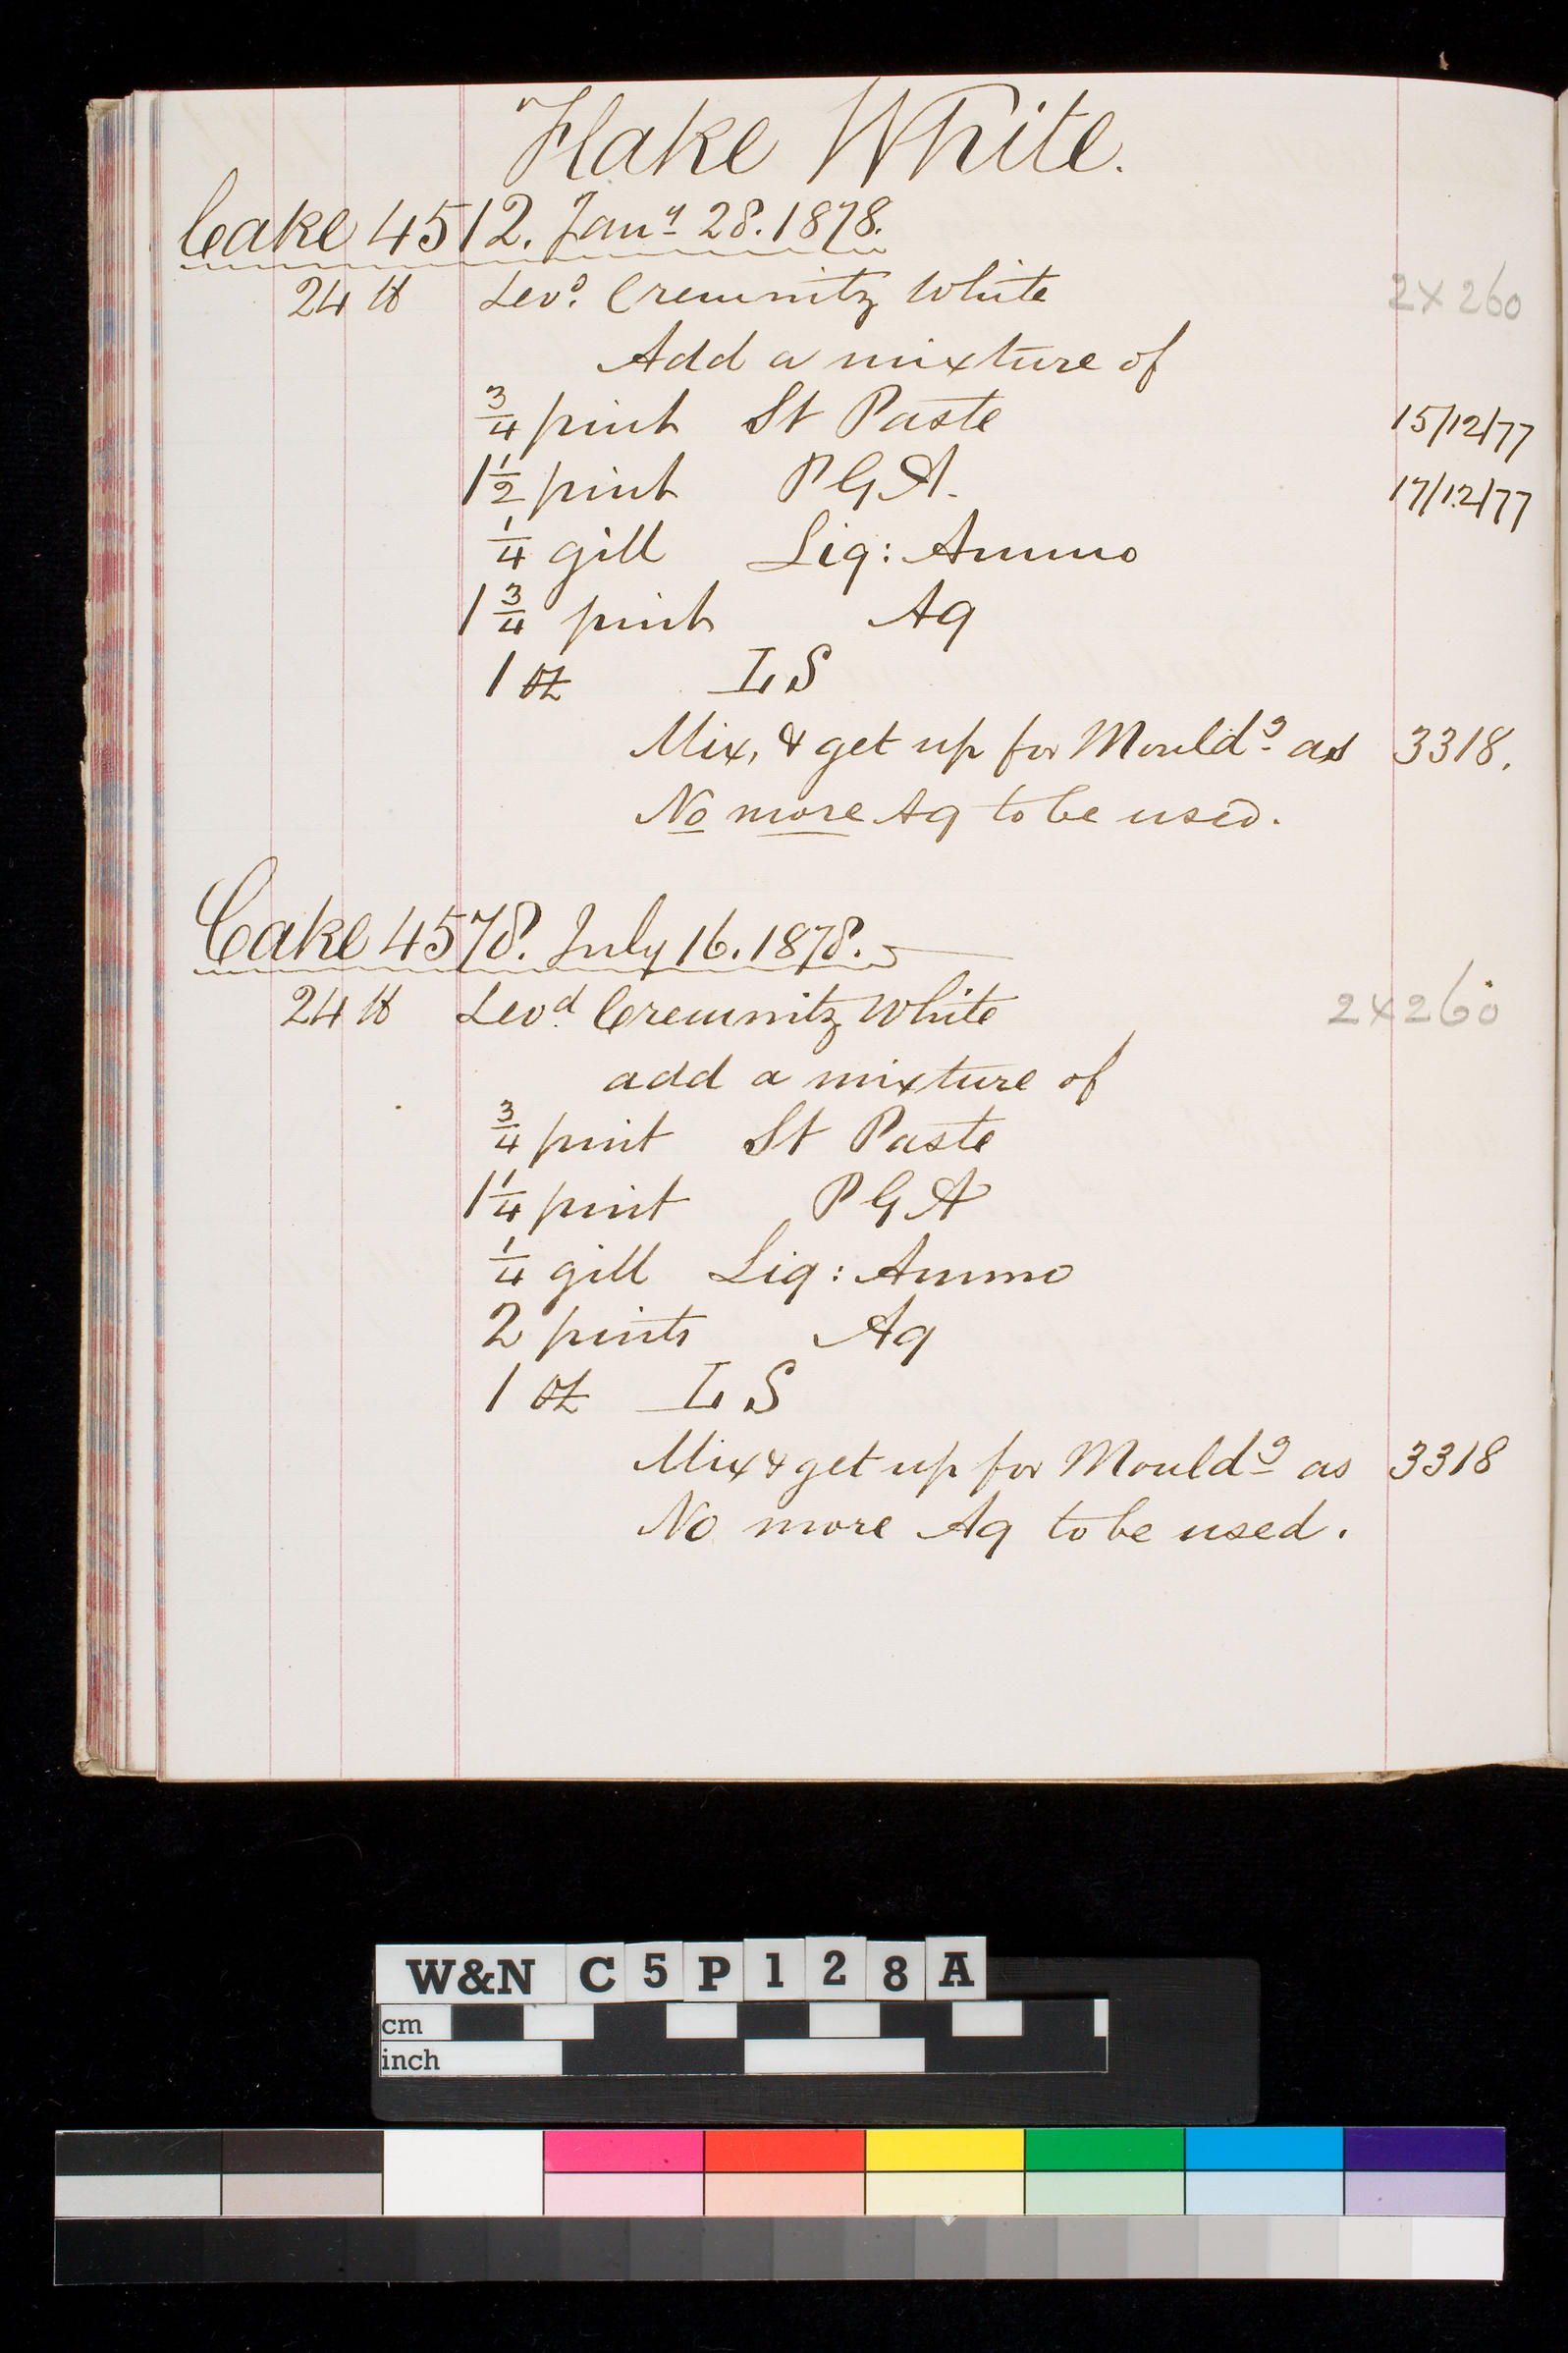 Flake White.
Cake 4512. Jany 28. 1878.
24 lb Levd. Cremnitz White 2 x 260
Add a mixture of
3/4 pint St Paste 15/12/77
1 1/2 pint P G A. 17/12/77
1/4 gill Liq: Ammo
1 3/4 pint Aq
1 oz L S
Mix, & get up for Mouldg as 3318.
No more Aq to be used.
Cake 4578. July 16. 1878.
24 lb Levd. Cremnitz White 2 x 260
add a mixture of
3/4 pint St Paste
1 1/4 pint P G A
1/4 gill Liq: Ammo
2 pints Aq
1 oz L S
Mix & get up for Mouldg as 3318
No more Aq to be used.
W&N C5P128A
cm
inch